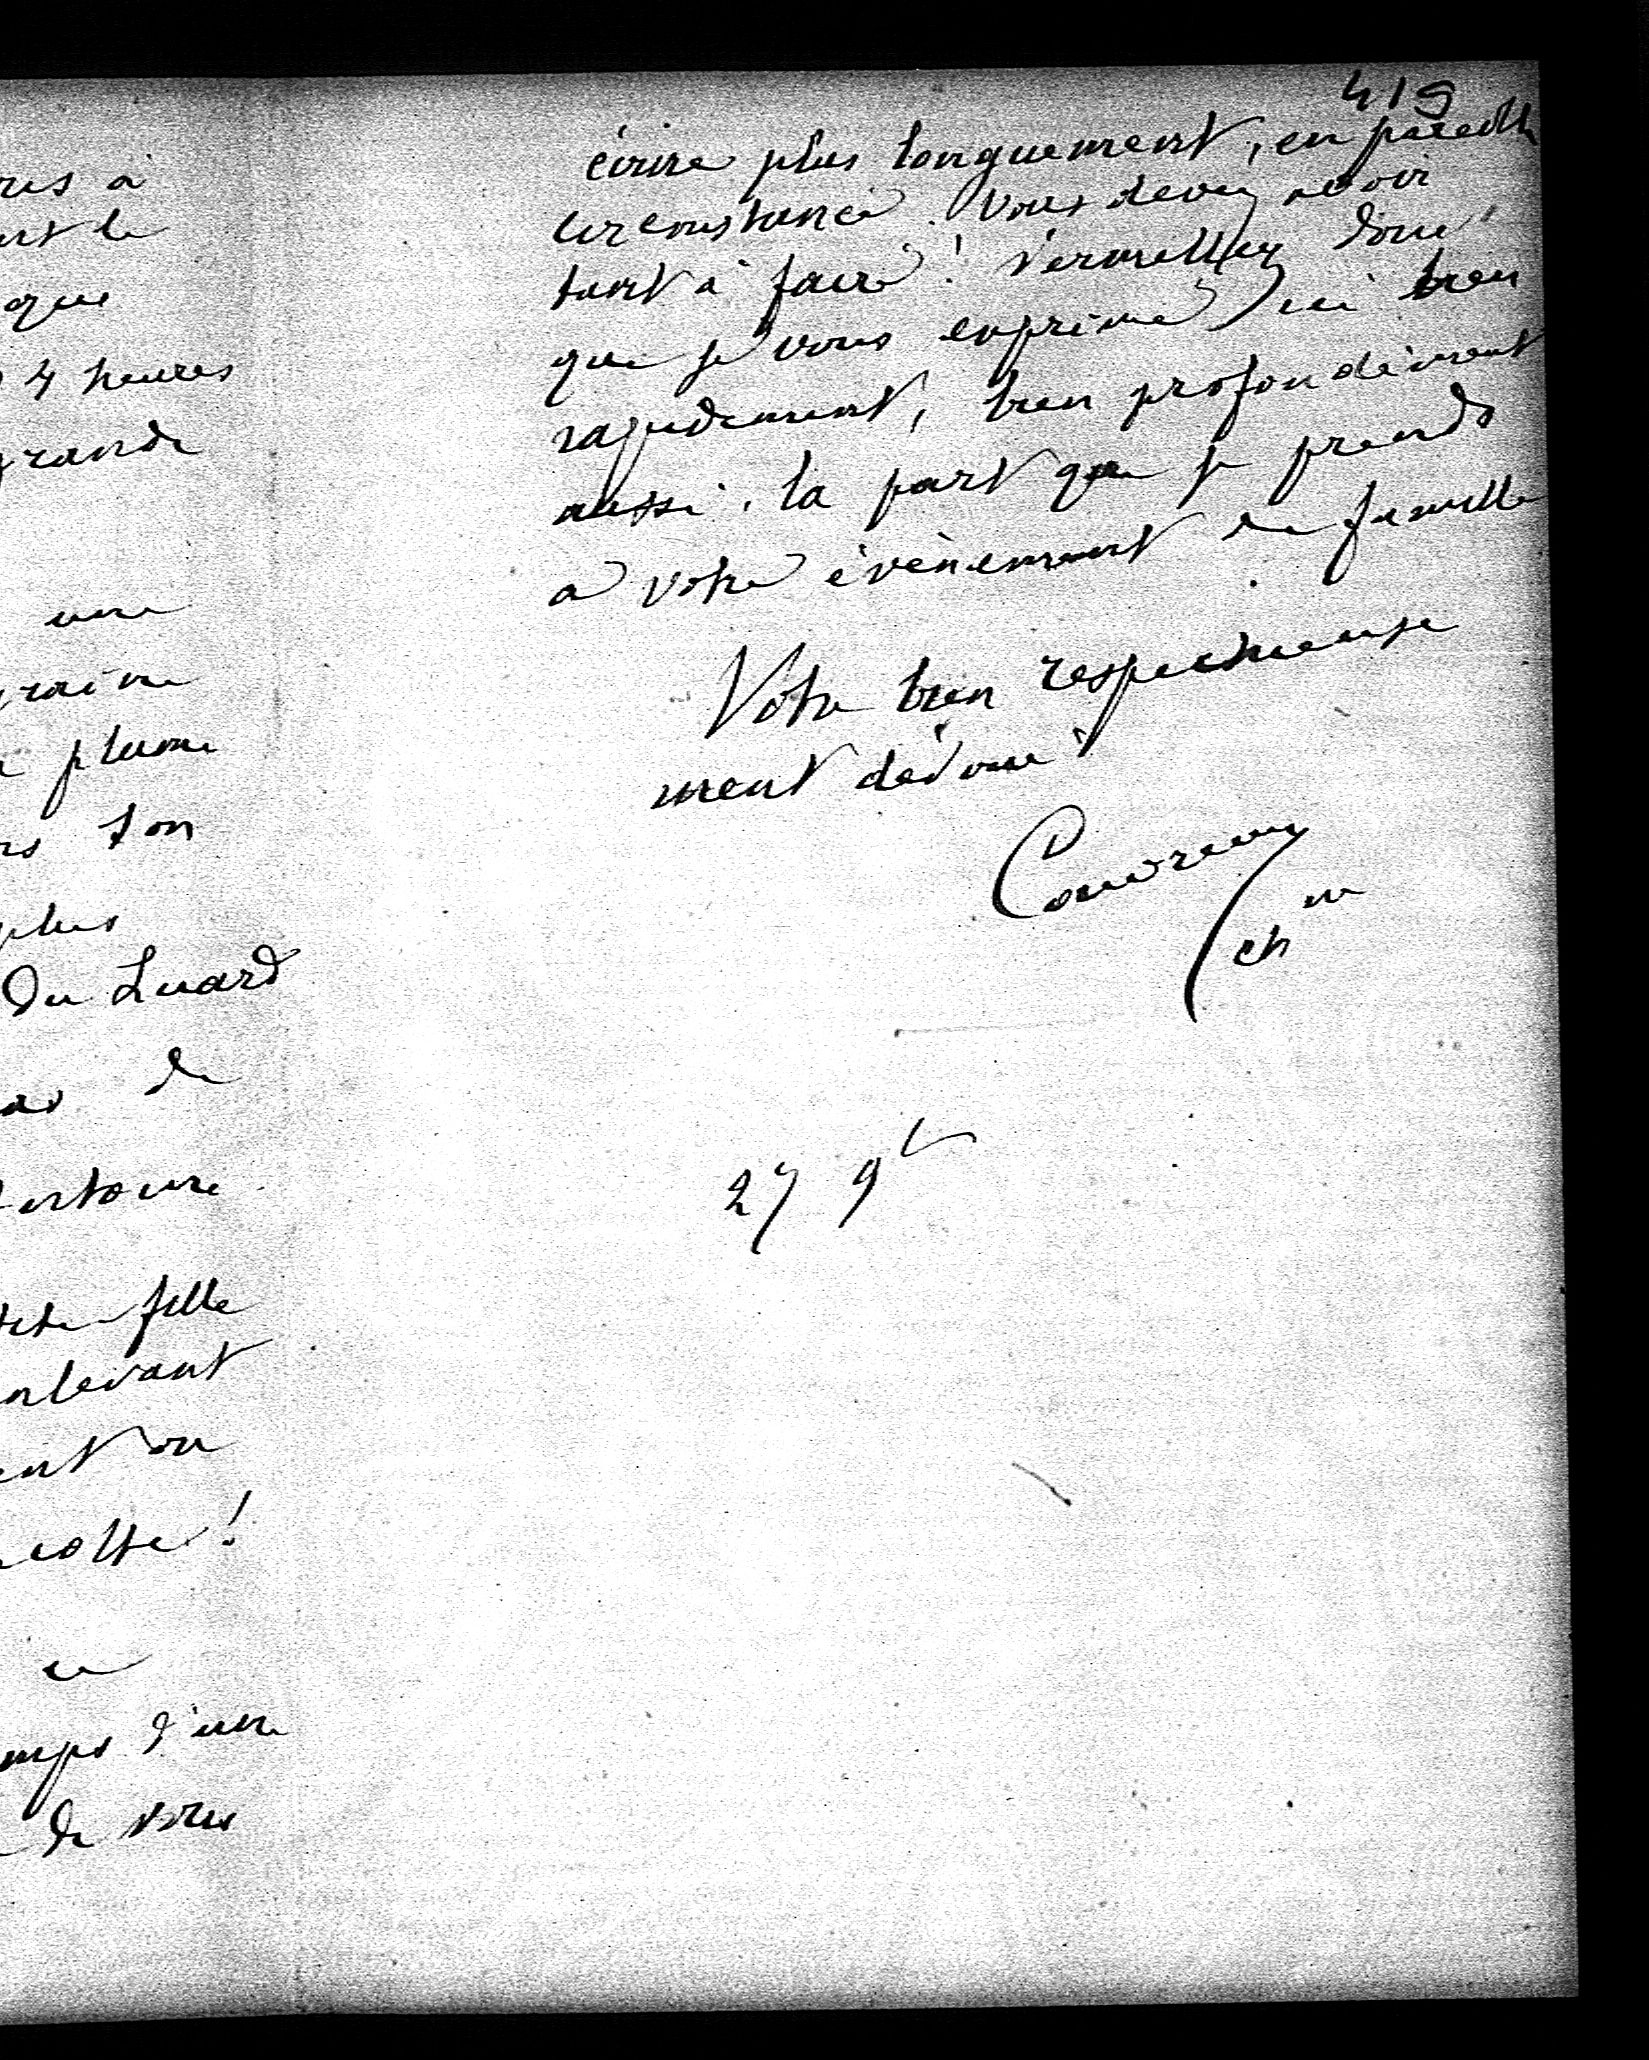 ous à
urt le
que
4 heures
grande
une
graine
plume
ns ton
plus
Du Luard
as de
entoure
tite fille
enlevant
ent on
colte !
ce
emps d'une
de vous
419
écrire plus longuement, en pareille
circonstance. Vous devez avoir
tant à faire ! Permettez donc
que je vous exprime ici bien
rapidement, bien profondément
aussi, la part que je prends
à votre évènement de famille
Votre bien respectueuse
ment dévoué
Couvreux
chne
27 9b